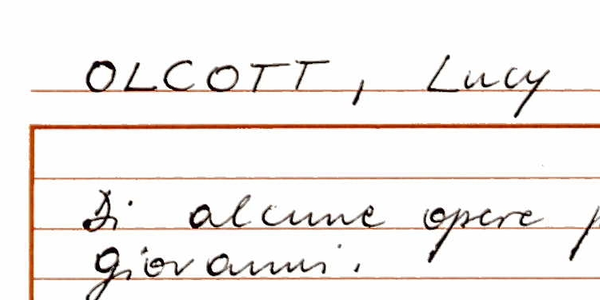 OLCOTT, Lucy
Di alcune opere
Giovanni.